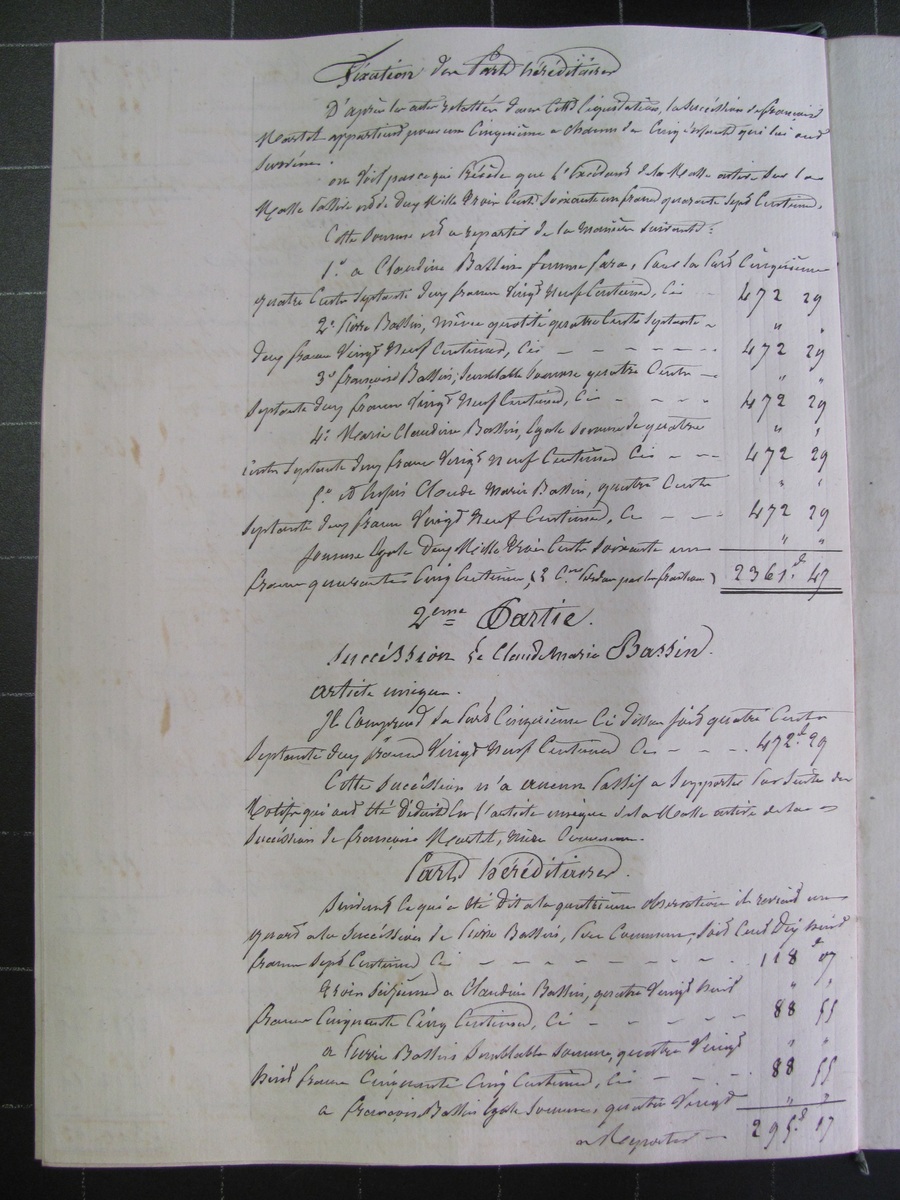 Fixation des Parts héréditaires
D'après les actes relatés dans cette liquidation, la succession de françoise
Martel appartient pour un Cinquième a chacun des Cinq enfants qui lui ont
survécu.
on voit par ce qui Précède que l'Excédent de la Masse active Sur la
Masse Passive est de Deux Mille Trois Cents Soixante un francs quarante Sept Centimes,
Cette Somme est a repartir de la manière suivante :
1° a Claudine Bassin femme fara, Pour la Part Cinquième
quatre Cents Septante deux francs Vingt Neuf Centimes, Ci — 472 29
2° Pierre Bassin, même quotité quatre Cents Septante " "
deux francs Vingt Neuf Centimes, Ci — — — — — — 472 29
3° françois Bassin, Semblable Somme quatre Cents — " "
Septante deux francs Vingt Neuf Centimes, Ci — — — — 472 29
4° Marie Claudine Bassin, Egale Somme de quatre " "
cents Septante deux francs Vingt Neuf Centimes Ci — — — 472 29
5° et hoirs Claude Marie Bassin, quatre Cents " "
Septante deux francs Vingt Neuf Centimes, Ci — — — 472 29
Somme Egale Deux Mille Trois Cents Soixante un " "
francs quarante Cinq Centimes, (2 C.mes Perdus par les fractions) 2361.f 47
2eme Partie.
Succéssion de Claude Marie Bassin.
article unique.
Il Comprend sa Part Cinquième Ci dessus soit quatre Cents
Septante deux francs Vingt Neuf Centimes Ci — — — 472.f 29
Cette Succéssion n'a aucun Passif a Supporter Par Suite des
Motifs qui ont été déduits en l'article unique de la Masse active de la
Succéssion de françoise Martel, mère Commune.
Parts héréditaires.
Suivant ce qui a été dit a la quatrième observation il revient un
quart a la Succéssion de Pierre Bassin, Père Commun, soit Cent Dix huit
francs Sept Centimes Ci — — — — — — — — 118.f 07
Trois Seizièmes a Claudine Bassin, quatre Vingt huit " "
francs Cinquante Cinq Centimes, Ci — — — — — — 88 55
a Pierre Bassin Semblable Somme, quatre Vingt " "
huit francs Cinquante Cinq Centimes, Ci — — — — 88 55
a francois Bassin Egale Somme, quatre Vingt " "
a Reporter — 295.f 17